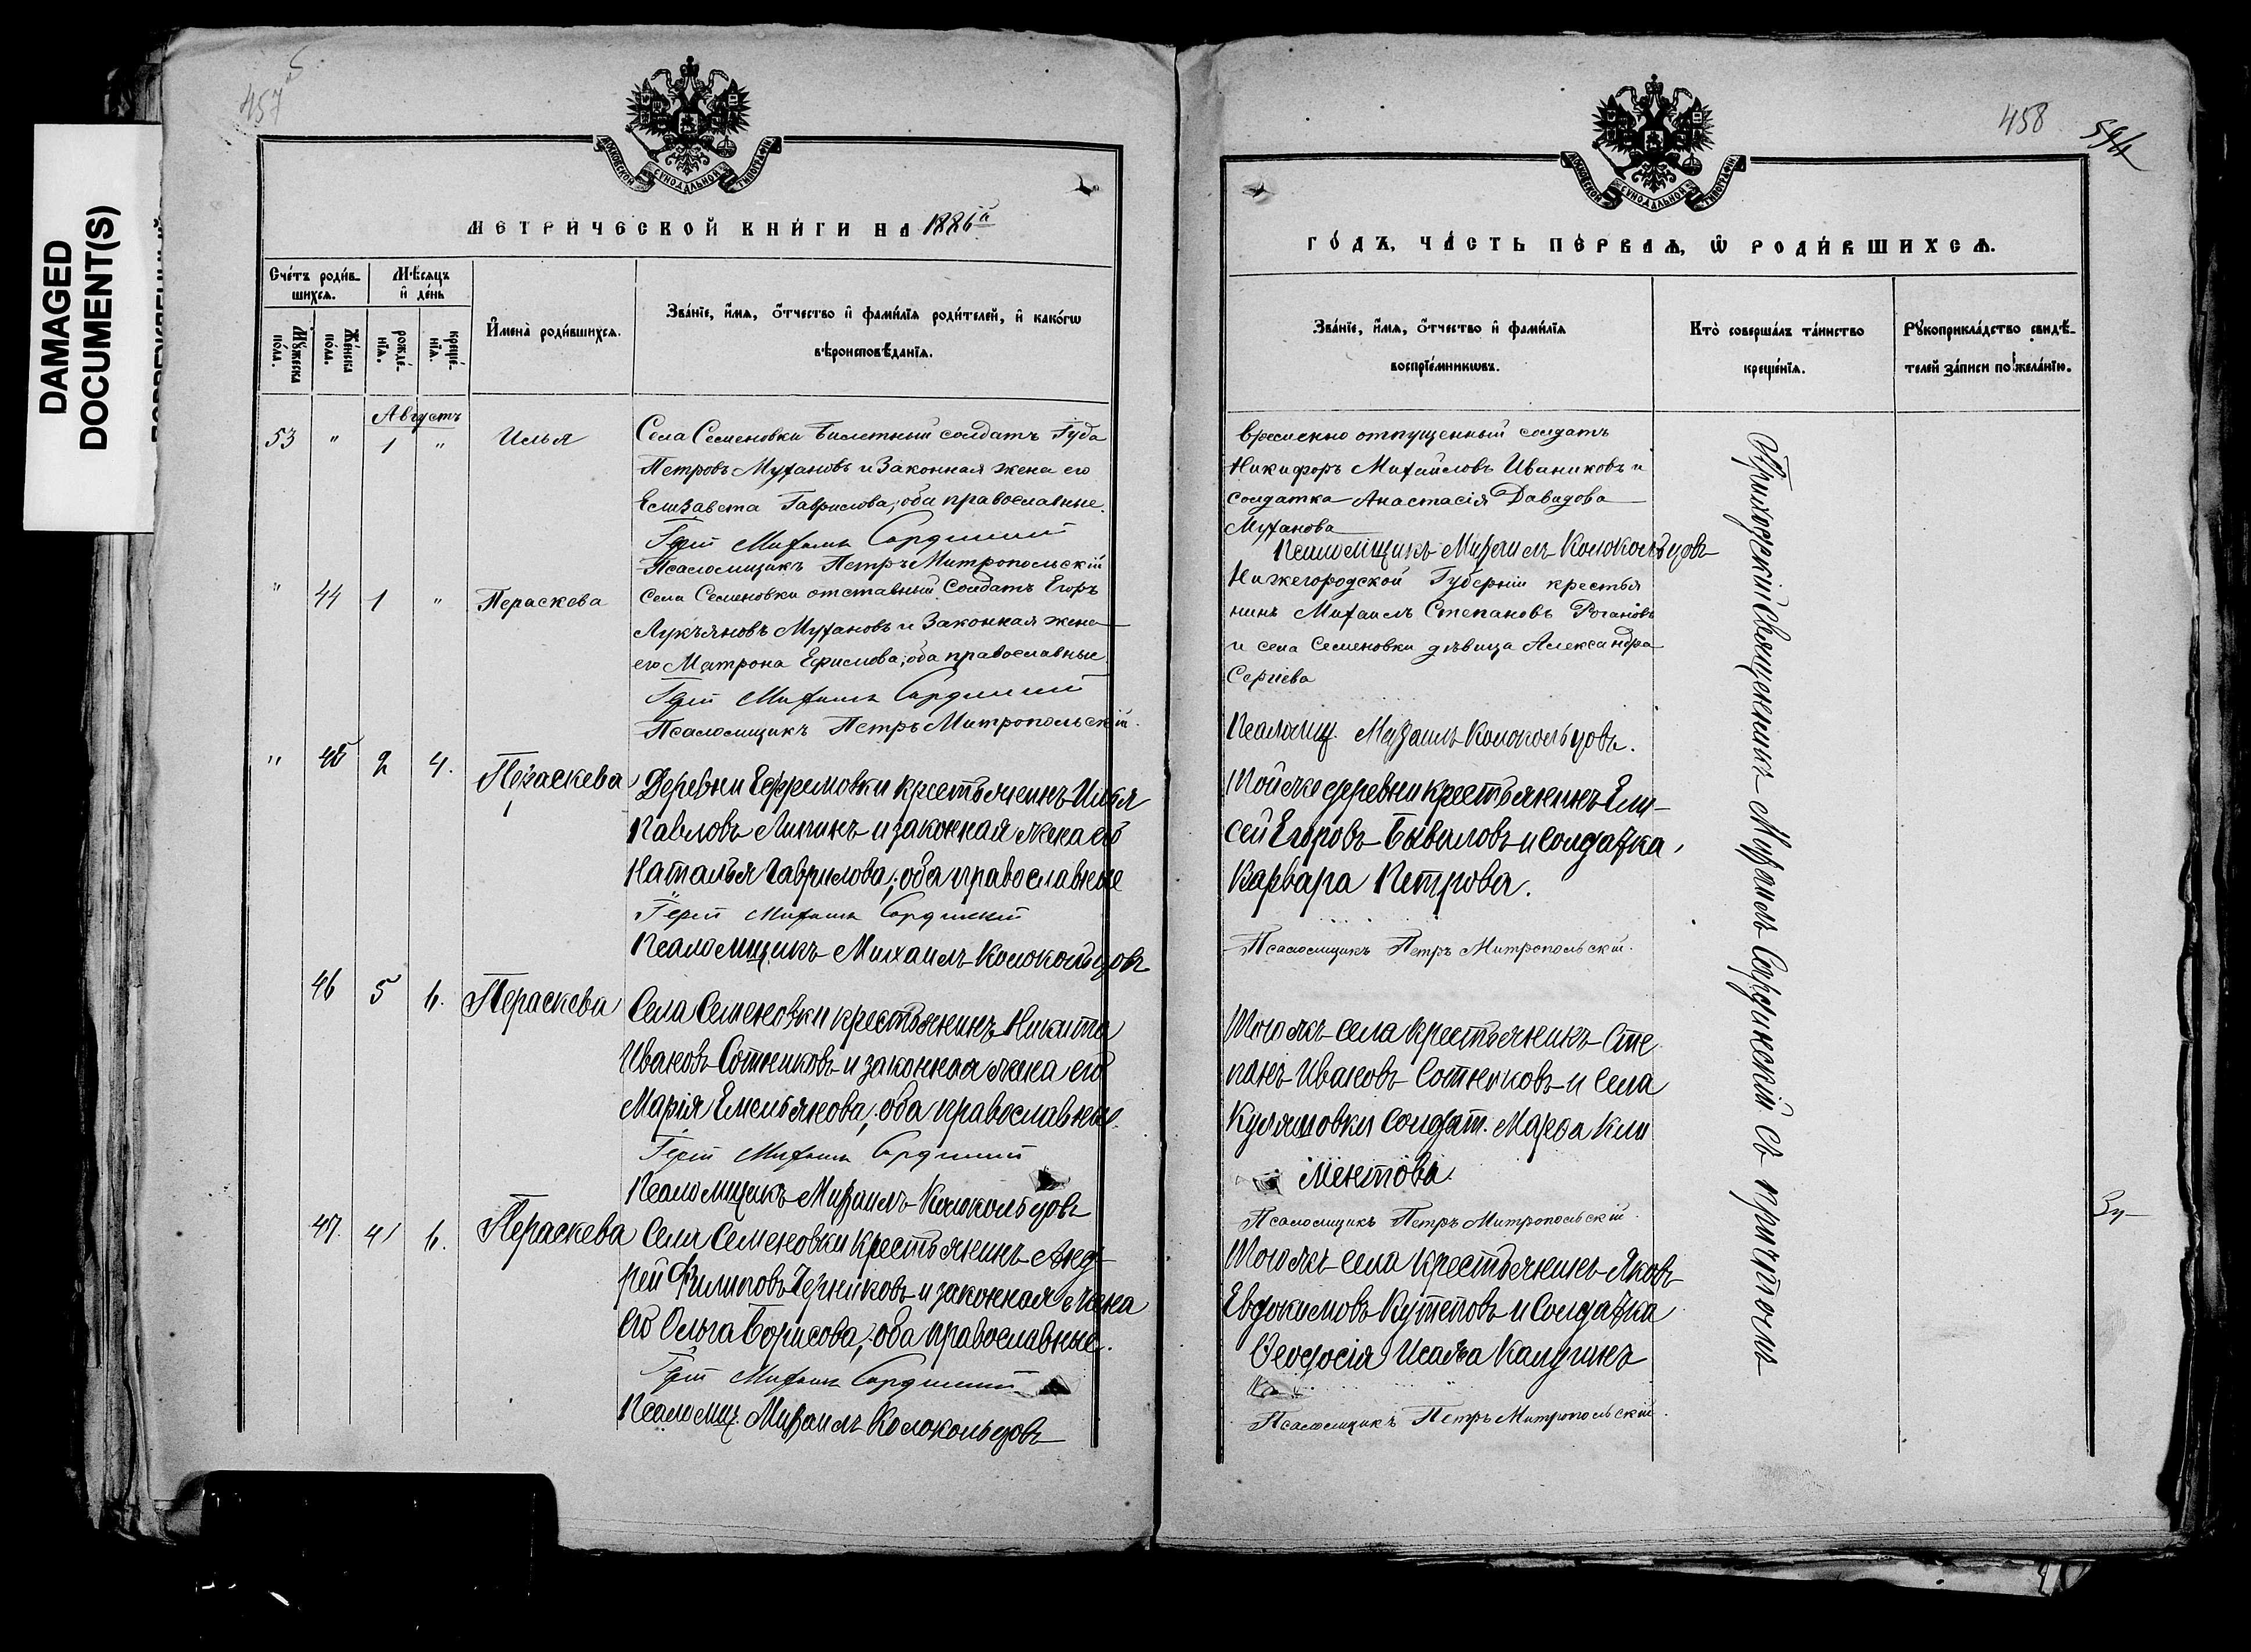 DAMAGED
DOCUMENT(S)
457
МОСКОВСКОЙ СѴНОДАЛЬНОЙ ТИПОГРАФІИ
МЕТРИЧЕСКОЙ КНИГИ НА 1886й
Счетъ родив-
шихся.
Мѣсяцъ
и день
Мужеска
пола.
Женска
пола.
рожде-
нія.
креще-
нія.
Имена родившихся.
Званіе, имя, отчество и фамилія родителей, и какогѡ
вѣроисповѣданія.
Августъ
53 " 1 " Илья
Села Семеновки билетный солдатъ Гуда
Петровъ Мухановъ и Законная жена его
Елизавета Гаврилова; оба православные.
Іерей Михаилъ
Псаломщикъ Петръ Митропольскій
" 44 1 " Параскева
Села Семеновки отставный Солдатъ Егоръ
Лукъяновъ Мухановъ и Законная жена
его Матрона Ефимова; оба православные
Іерей Михаилъ
Псаломщикъ Петръ Митропольскій.
" 45 2 4. Параскева
Деревни Ефремовки крестьянинъ Илья
Павловъ Липинъ и законная жена его
Наталья Гаврилова; оба православные
Іерей Михаилъ
Псаломщикъ Михаилъ Колокольцовъ
46 5 6. Параскева
Села Семеновки крестьянинъ Никита
Ивановъ Сотниковъ и законная жена его
Марія Емельянова; оба православные.
Іерей Михаилъ
Псаломщикъ Михаилъ Колокольцовъ
47. 4 6. Параскева
Села Семеновки крестьянинъ Анд-
рей Филиповъ Черниковъ и законная жена
его Ольга Борисова; оба православные.
Іерей Михаилъ
Псаломщ. Михаилъ Колокольцовъ
458
МОСКОВСКОЙ СѴНОДАЛЬНОЙ ТИПОГРАФІИ
ГОДЪ, ЧАСТЬ ПЕРВАЯ, Ѡ РОДИВШИХСЯ.
Званіе, имя, отчество и фамилія
воспріемникѡвъ.
Кто совершалъ таинство
крещенія.
Рукоприкладство свидѣ-
телей записи по желанію.
временно отпущенный солдатъ
Никифоръ Михайловъ Иваниковъ и
солдатка Анастасія Давидова
Муханова
Псаломщикъ Михаилъ Колокольцовъ
Нижегородской Губерніи крестья
нинъ Михаилъ Степановъ Рогановъ
и села Семеновки дѣвица Александра
Сергіева
Псаломщ. Михаилъ Колокольцовъ.
Той же деревни крестьянинъ Ели-
сей Егоровъ Бываловъ и солдатка
Варвара Петрова.
Псаломщикъ Петръ Митропольскій.
Того же села крестьянинъ Сте
панъ Ивановъ Сотниковъ и села
солдат. Марѳа Кли
ментова.
Псаломщикъ Петръ Митропольскій.
Того же села крестьянинъ Яковъ
Евдокимовъ Кутеповъ и Солдатка
Ѳеодосія Исаева
Псаломщикъ Петръ Митропольскій.
Приходскій Священникъ Михаилъ съ причтомъ